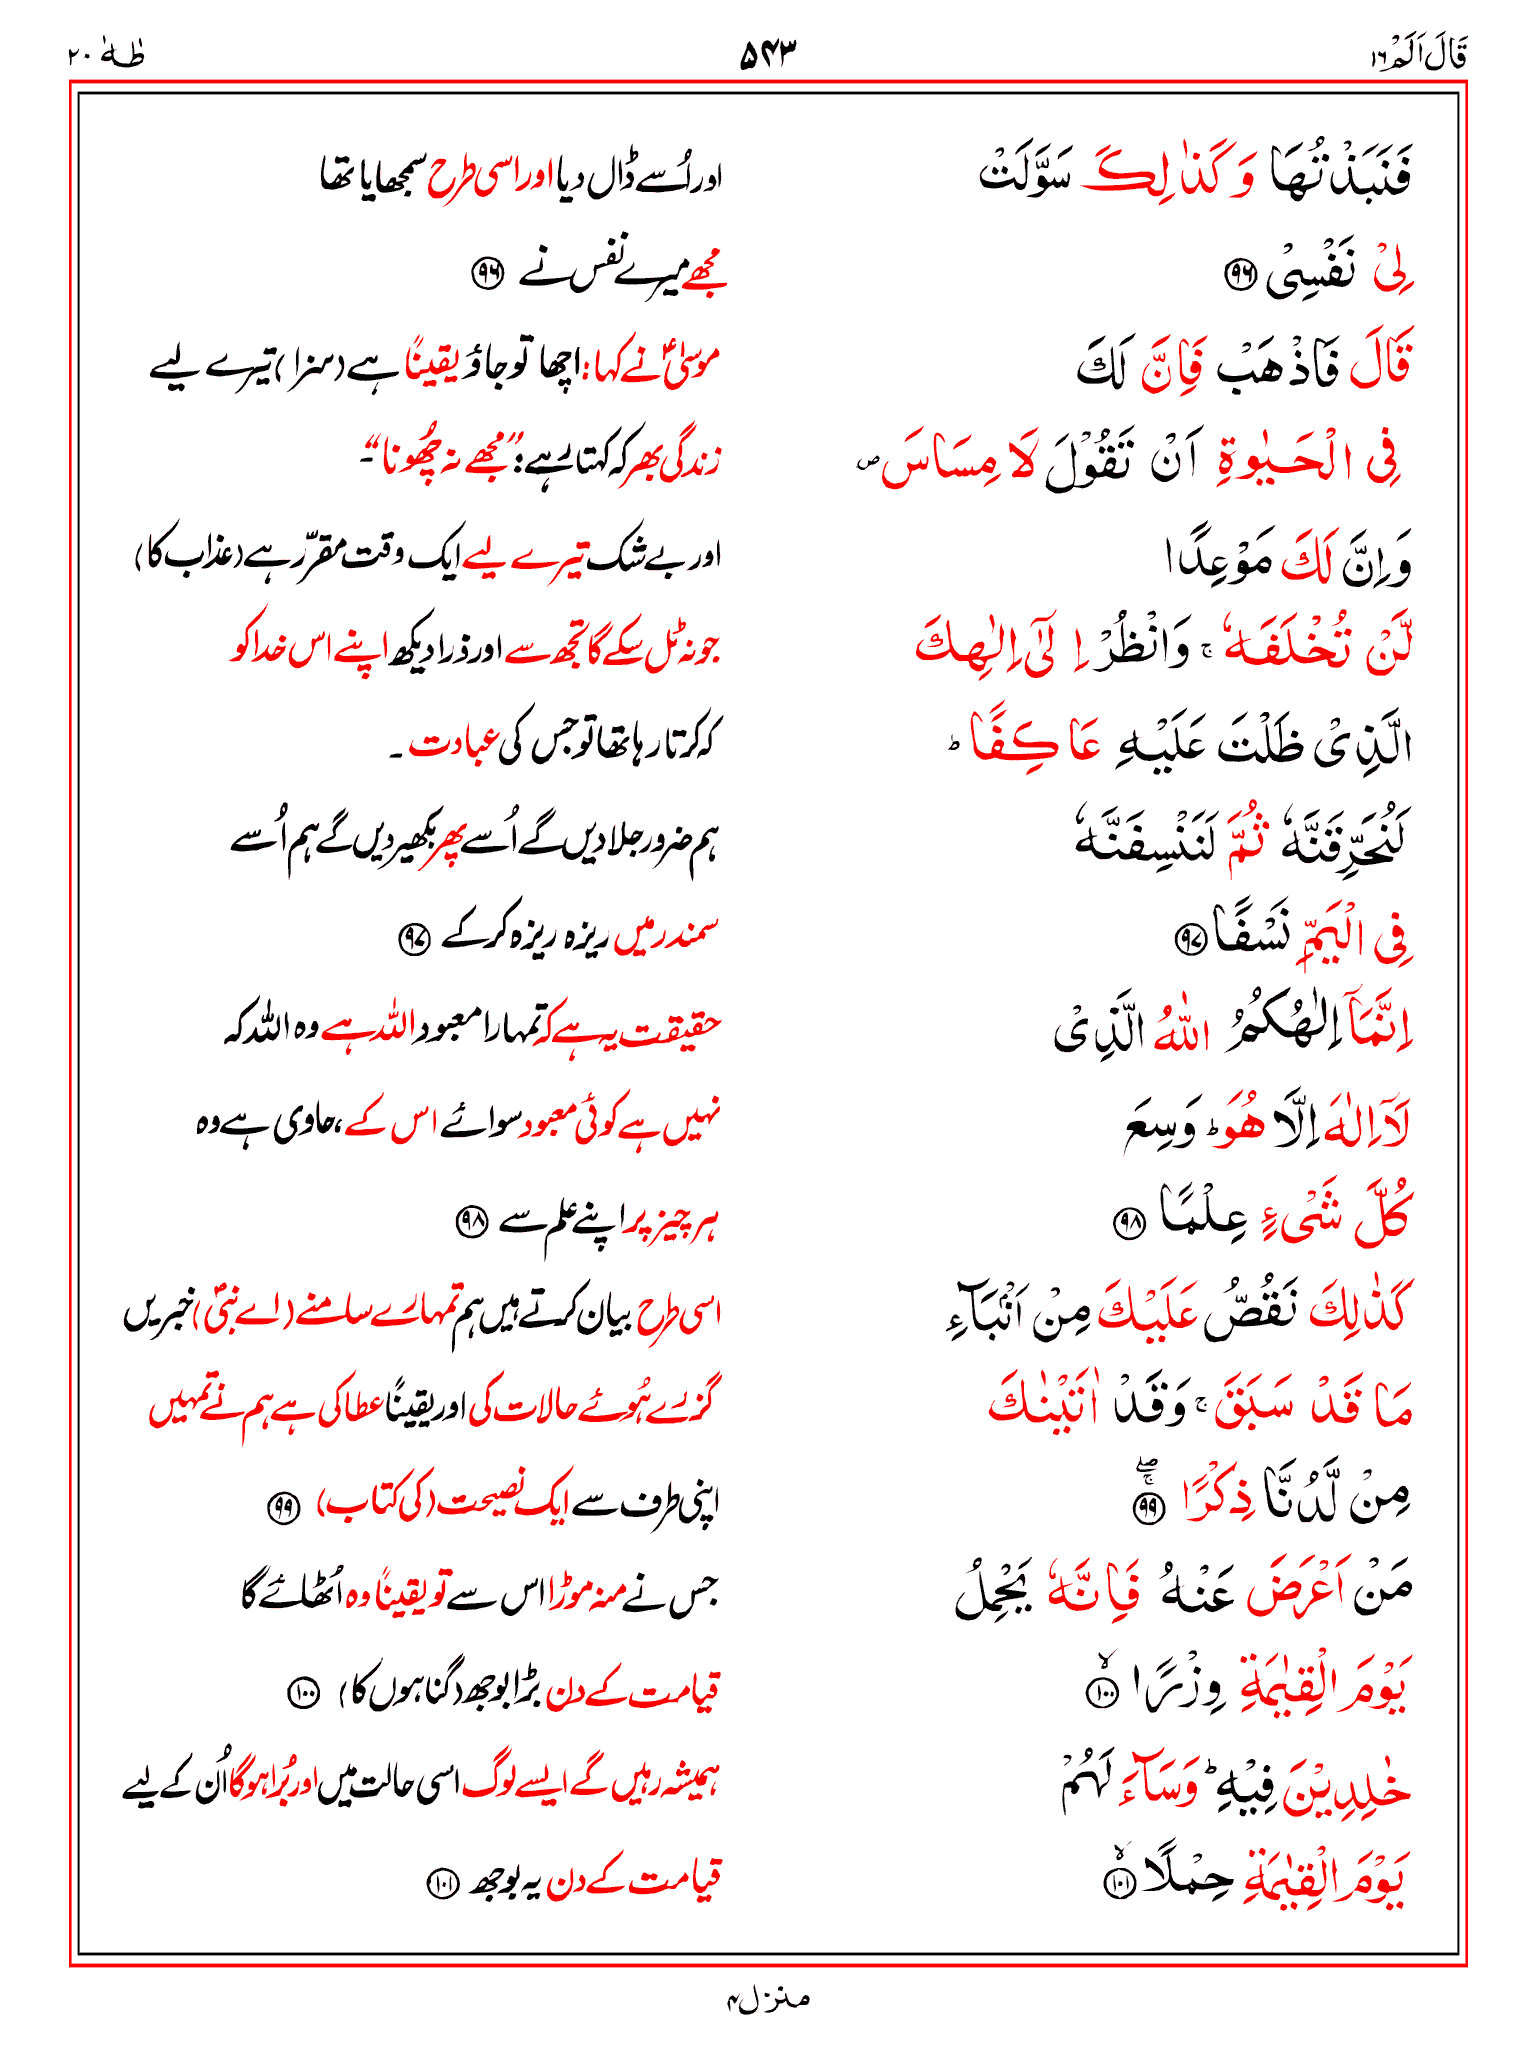 قَالَ اَلَمْ ۱۶
۵۴۳
طٰهٰ ۲۰
فَنَبَذْتُهَا وَكَذٰلِكَ سَوَّلَتْ
اور اُسے ڈال دیا اور اسی طرح سمجھایا تھا
لِیْ نَفْسِیْ ﴿۹۶﴾
مجھے میرے نفس نے ﴿۹۶﴾
قَالَ فَاذْهَبْ فَاِنَّ لَكَ
موسیٰؑ نے کہا: اچھا تو جاؤ یقیناً ہے (سزا) تیرے لیے
فِی الْحَیٰوةِ اَنْ تَقُوْلَ لَا مِسَاسَ ۪
زندگی بھر کہ کہتا رہے: ”مجھے نہ چُھونا“۔
وَاِنَّ لَكَ مَوْعِدًا
اور بے شک تیرے لیے ایک وقت مقرّر ہے (عذاب کا)
لَّنْ تُخْلَفَهٗ ۚ وَانْظُرْ اِلٰۤی اِلٰهِكَ
جو نہ ٹل سکے گا تجھ سے اور ذرا دیکھ اپنے اس خدا کو
الَّذِیْ ظَلْتَ عَلَیْهِ عَاكِفًا ؕ
کہ کرتا رہا تھا تو جس کی عبادت ۔
لَنُحَرِّقَنَّهٗ ثُمَّ لَنَنْسِفَنَّهٗ
ہم ضرور جلا دیں گے اُسے پھر بکھیر دیں گے ہم اُسے
فِی الْیَمِّ نَسْفًا ﴿۹۷﴾
سمندر میں ریزہ ریزہ کر کے ﴿۹۷﴾
اِنَّمَاۤ اِلٰهُكُمُ اللّٰهُ الَّذِیْ
حقیقت یہ ہے کہ تمہارا معبود اللہ ہے وہ اللہ کہ
لَاۤ اِلٰهَ اِلَّا هُوَ ؕ وَسِعَ
نہیں ہے کوئی معبود سوائے اس کے، حاوی ہے وہ
كُلَّ شَیْءٍ عِلْمًا ﴿۹۸﴾
ہر چیز پر اپنے علم سے ﴿۹۸﴾
كَذٰلِكَ نَقُصُّ عَلَیْكَ مِنْ اَنْۢبَآءِ
اسی طرح بیان کرتے ہیں ہم تمہارے سامنے (اے نبیؐ) خبریں
مَا قَدْ سَبَقَ ۚ وَقَدْ اٰتَیْنٰكَ
گزرے ہُوئے حالات کی اور یقیناً عطا کی ہے ہم نے تمہیں
مِنْ لَّدُنَّا ذِكْرًا ﴿۹۹﴾ ۖۚ
اپنی طرف سے ایک نصیحت (کی کتاب) ﴿۹۹﴾
مَنْ اَعْرَضَ عَنْهُ فَاِنَّهٗ یَحْمِلُ
جس نے منہ موڑا اس سے تو یقیناً وہ اُٹھائے گا
یَوْمَ الْقِیٰمَةِ وِزْرًا ﴿۱۰۰﴾ ۙ
قیامت کے دن بڑا بوجھ (گناہوں کا) ﴿۱۰۰﴾
خٰلِدِیْنَ فِیْهِ ؕ وَسَآءَ لَهُمْ
ہمیشہ رہیں گے ایسے لوگ اسی حالت میں اور بُرا ہوگا اُن کے لیے
یَوْمَ الْقِیٰمَةِ حِمْلًا ﴿۱۰۱﴾ ۙ
قیامت کے دن یہ بوجھ ﴿۱۰۱﴾
منزل ۴